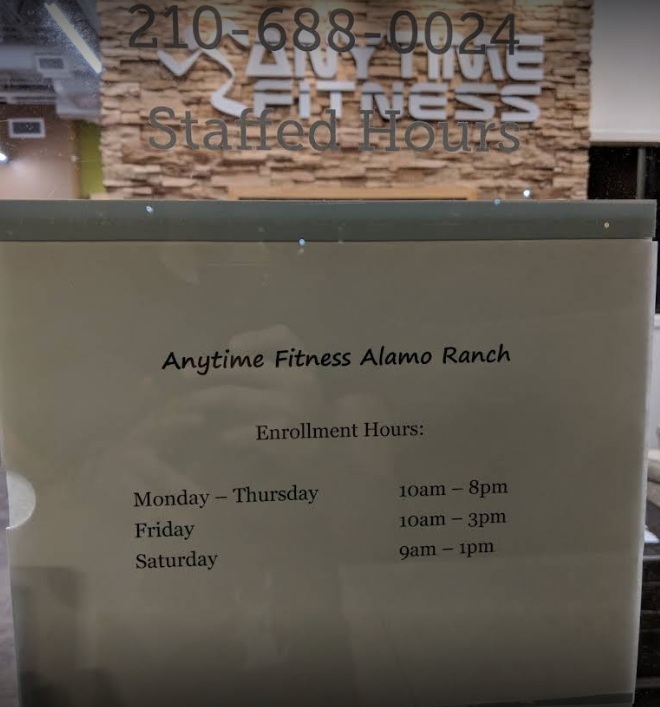 210-688-0024
ANYTIME
FITNESS
Staffed Hours
Anytime Fitness Alamo Ranch
Enrollment Hours:
Monday – Thursday 10am – 8pm
Friday 10am – 3pm
Saturday 9am – 1pm